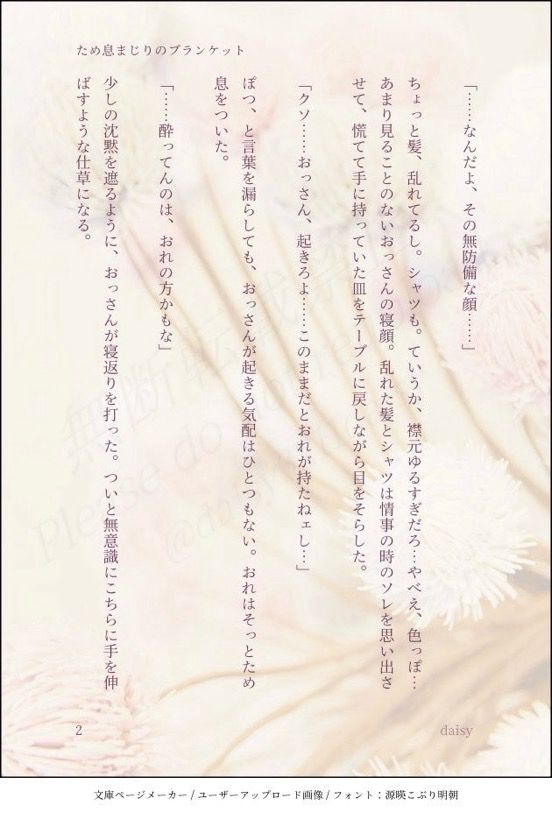 ため息まじりのブランケット
「……なんだよ、その無防備な顔……」
ちょっと髪、乱れてるし。シャツも。ていうか、襟元ゆるすぎだろ…やべえ、色っぽ…
あまり見ることのないおっさんの寝顔。乱れた髪とシャツは情事の時のソレを思い出さ
せて、慌てて手に持っていた皿をテーブルに戻しながら目をそらした。
「クソ……おっさん、起きろよ……このままだとおれが持たねェし…」
ぽつ、と言葉を漏らしても、おっさんが起きる気配はひとつもない。おれはそっとため
息をついた。
「……酔ってんのは、おれの方かもな」
少しの沈黙を遮るように、おっさんが寝返りを打った。ついと無意識にこちらに手を伸
ばすような仕草になる。
無断転載禁
Please do not
@daisy
2
daisy
文庫ページメーカー / ユーザーアップロード画像 / フォント：源暎こぶり明朝